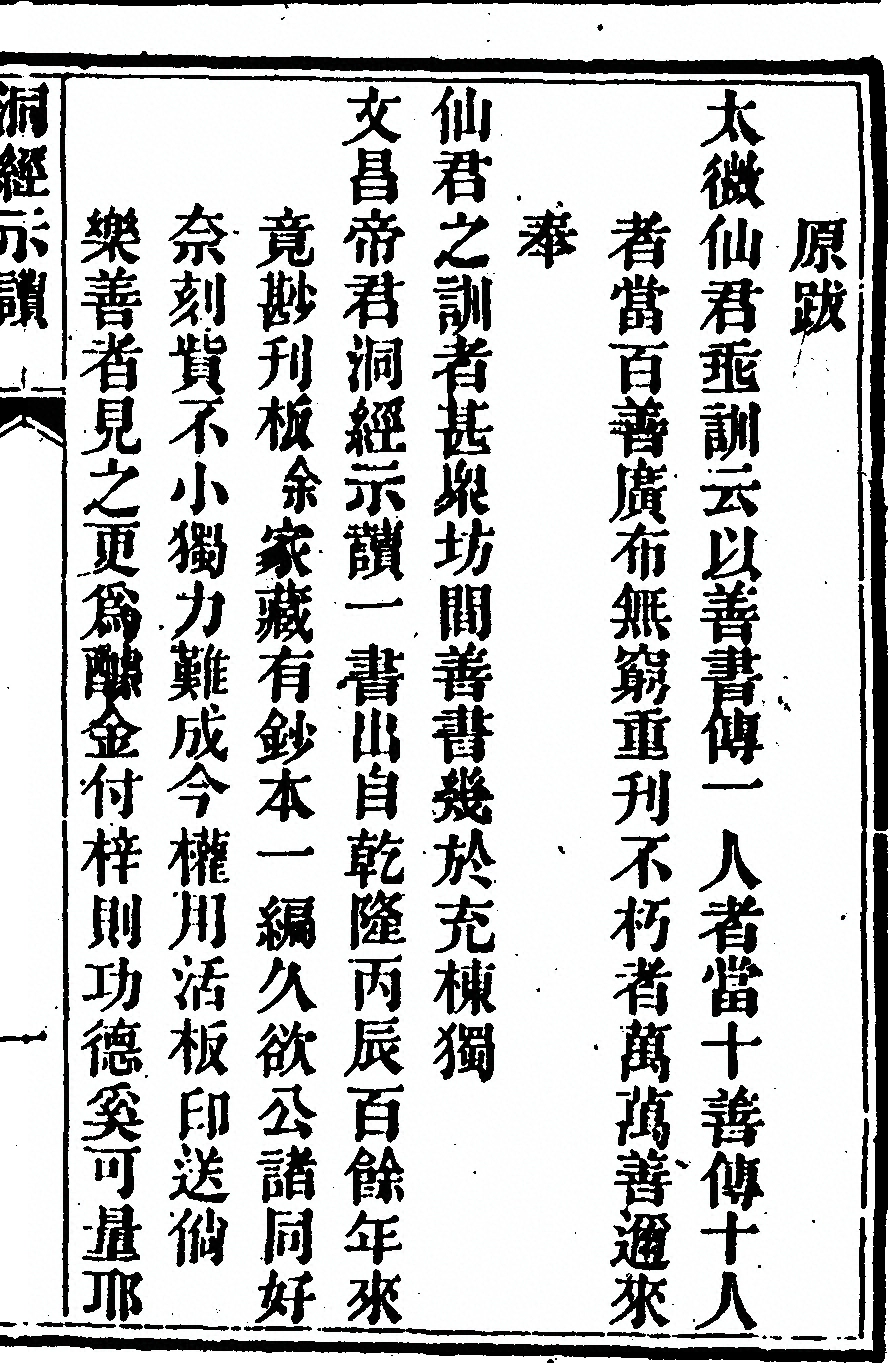 原跋
太微仙君垂訓云以善書傳一人者當十善傳十人
者當百善廣布無窮重刊不朽者萬萬善邇來
奉
仙君之訓者甚衆坊間善書幾於充棟獨
文昌帝君洞經示讀一書出自乾隆丙辰百餘年來
竟尠刊板余家藏有鈔本一編久欲公諸同好
奈刻貲不小獨力難成今權用活板印送倘
樂善者見之更爲醵金付梓則功德奚可量耶
洞經示讀
一